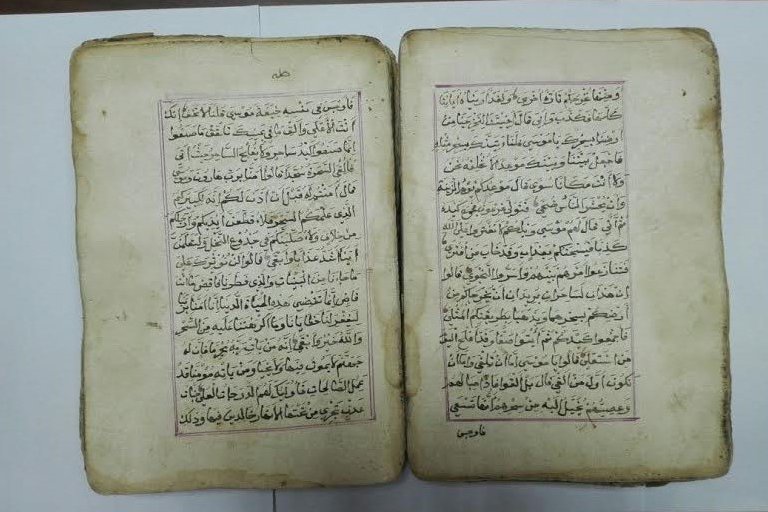 ومنها نخرجكم تارة اخرى ولقد اريناه اياتنا
كلها فكذب وابى قال اجئتنا لتخرجنا من
ارضنا بسحرك يا موسى فلنأتينك بسحر مثله
فاجعل بيننا وبينك موعدا لا نخلفه نحن
ولا انت مكانا سوى قال موعدكم يوم الزينة
وان يحشر الناس ضحى فتولى فرعون فجمع كيده
ثم اتى قال لهم موسى ويلكم لا تفتروا على الله
كذبا فيسحتكم بعذاب وقد خاب من افترى
فتنازعوا امرهم بينهم واسروا النجوى قالوا
ان هذان لساحران يريدان ان يخرجاكم من
ارضكم بسحرهما ويذهبا بطريقتكم المثلى
فاجمعوا كيدكم ثم ائتوا صفا وقد افلح اليوم
من استعلى قالوا يا موسى اما ان تلقي واما ان
نكون اول من القى قال بل القوا فاذا حبالهم
وعصيهم يخيل اليه من سحرهم انها تسعى
فاوجس
طه
فاوجس في نفسه خيفة موسى قلنا لا تخف انك
انت الاعلى والق ما في يمينك تلقف ما صنعوا
انما صنعوا كيد ساحر ولا يفلح الساحر حيث اتى
فالقي السحرة سجدا قالوا امنا برب هارون وموسى
قال امنتم له قبل ان اذن لكم انه لكبيركم
الذي علمكم السحر فلاقطعن ايديكم وارجلكم
من خلاف ولاصلبنكم في جذوع النخل ولتعلمن
اينا اشد عذابا وابقى قالوا لن نؤثرك على
ما جاءنا من البينات والذي فطرنا فاقض ما انت
قاض انما تقضي هذه الحياة الدنيا انا امنا بربنا
ليغفر لنا خطايانا وما اكرهتنا عليه من السحر
والله خير وابقى انه من يات ربه مجرما فان له
جهنم لا يموت فيها ولا يحيا ومن ياته مومنا قد
عمل الصالحات فاولئك لهم الدرجات العلى جنات
عدن تجري من تحتها الانهار خالدين فيها وذلك